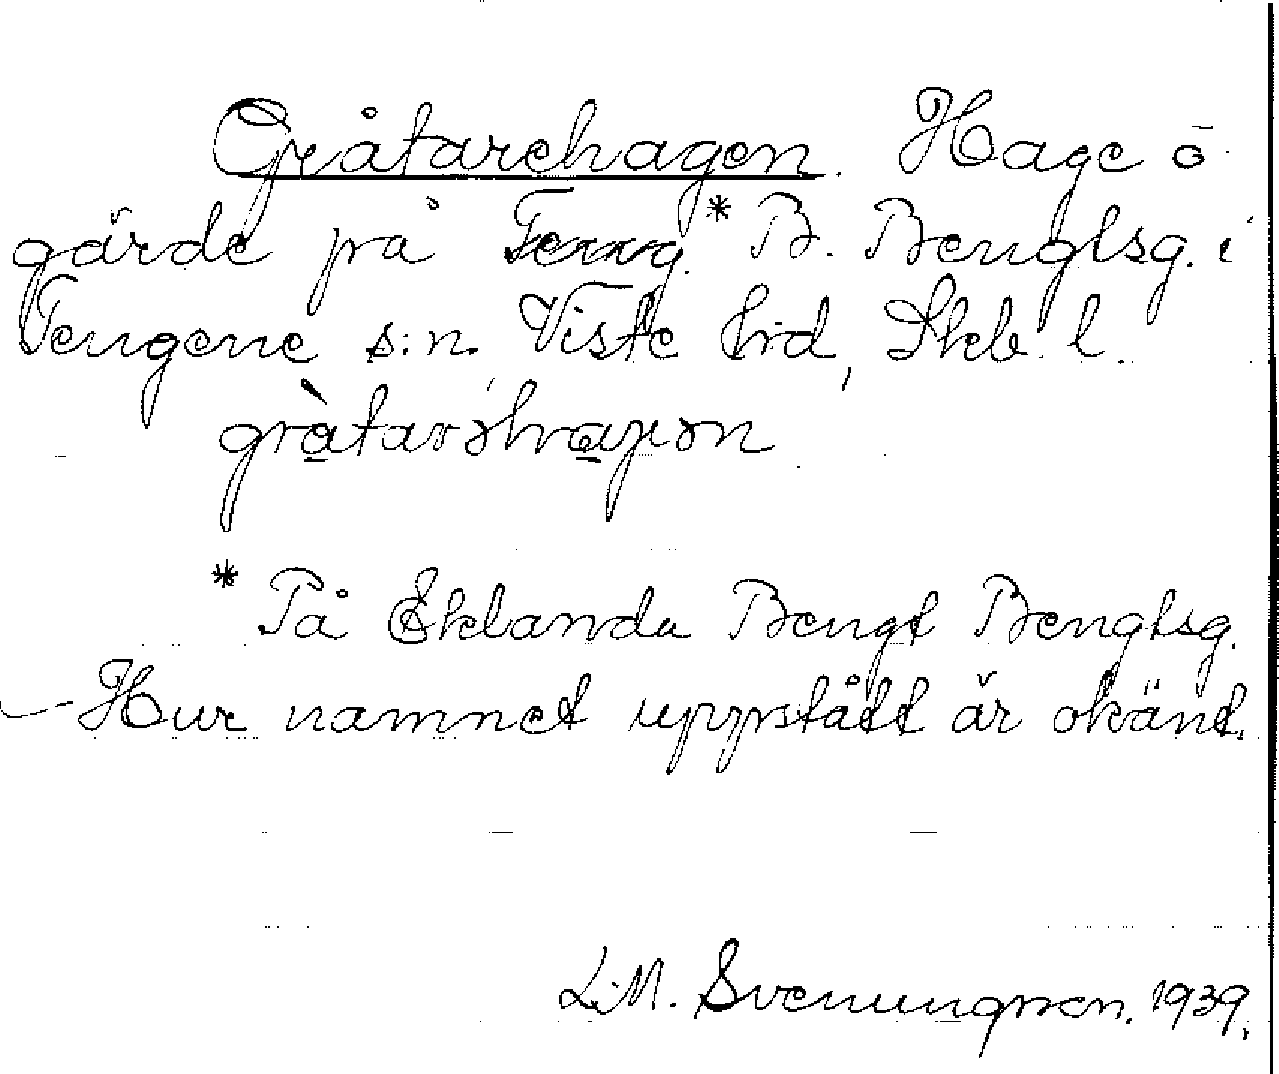 Gråtarehagen. Hage ō
gärde på * B. Bengtsg. i
Tengene s:n. Viste hrd, Skb. l.
gràtarəhaɡən
* På Eklanda Bengt Bengtsg.
— Hur namnet uppstått är okänt.
L.M. Svenungsson. 1939.